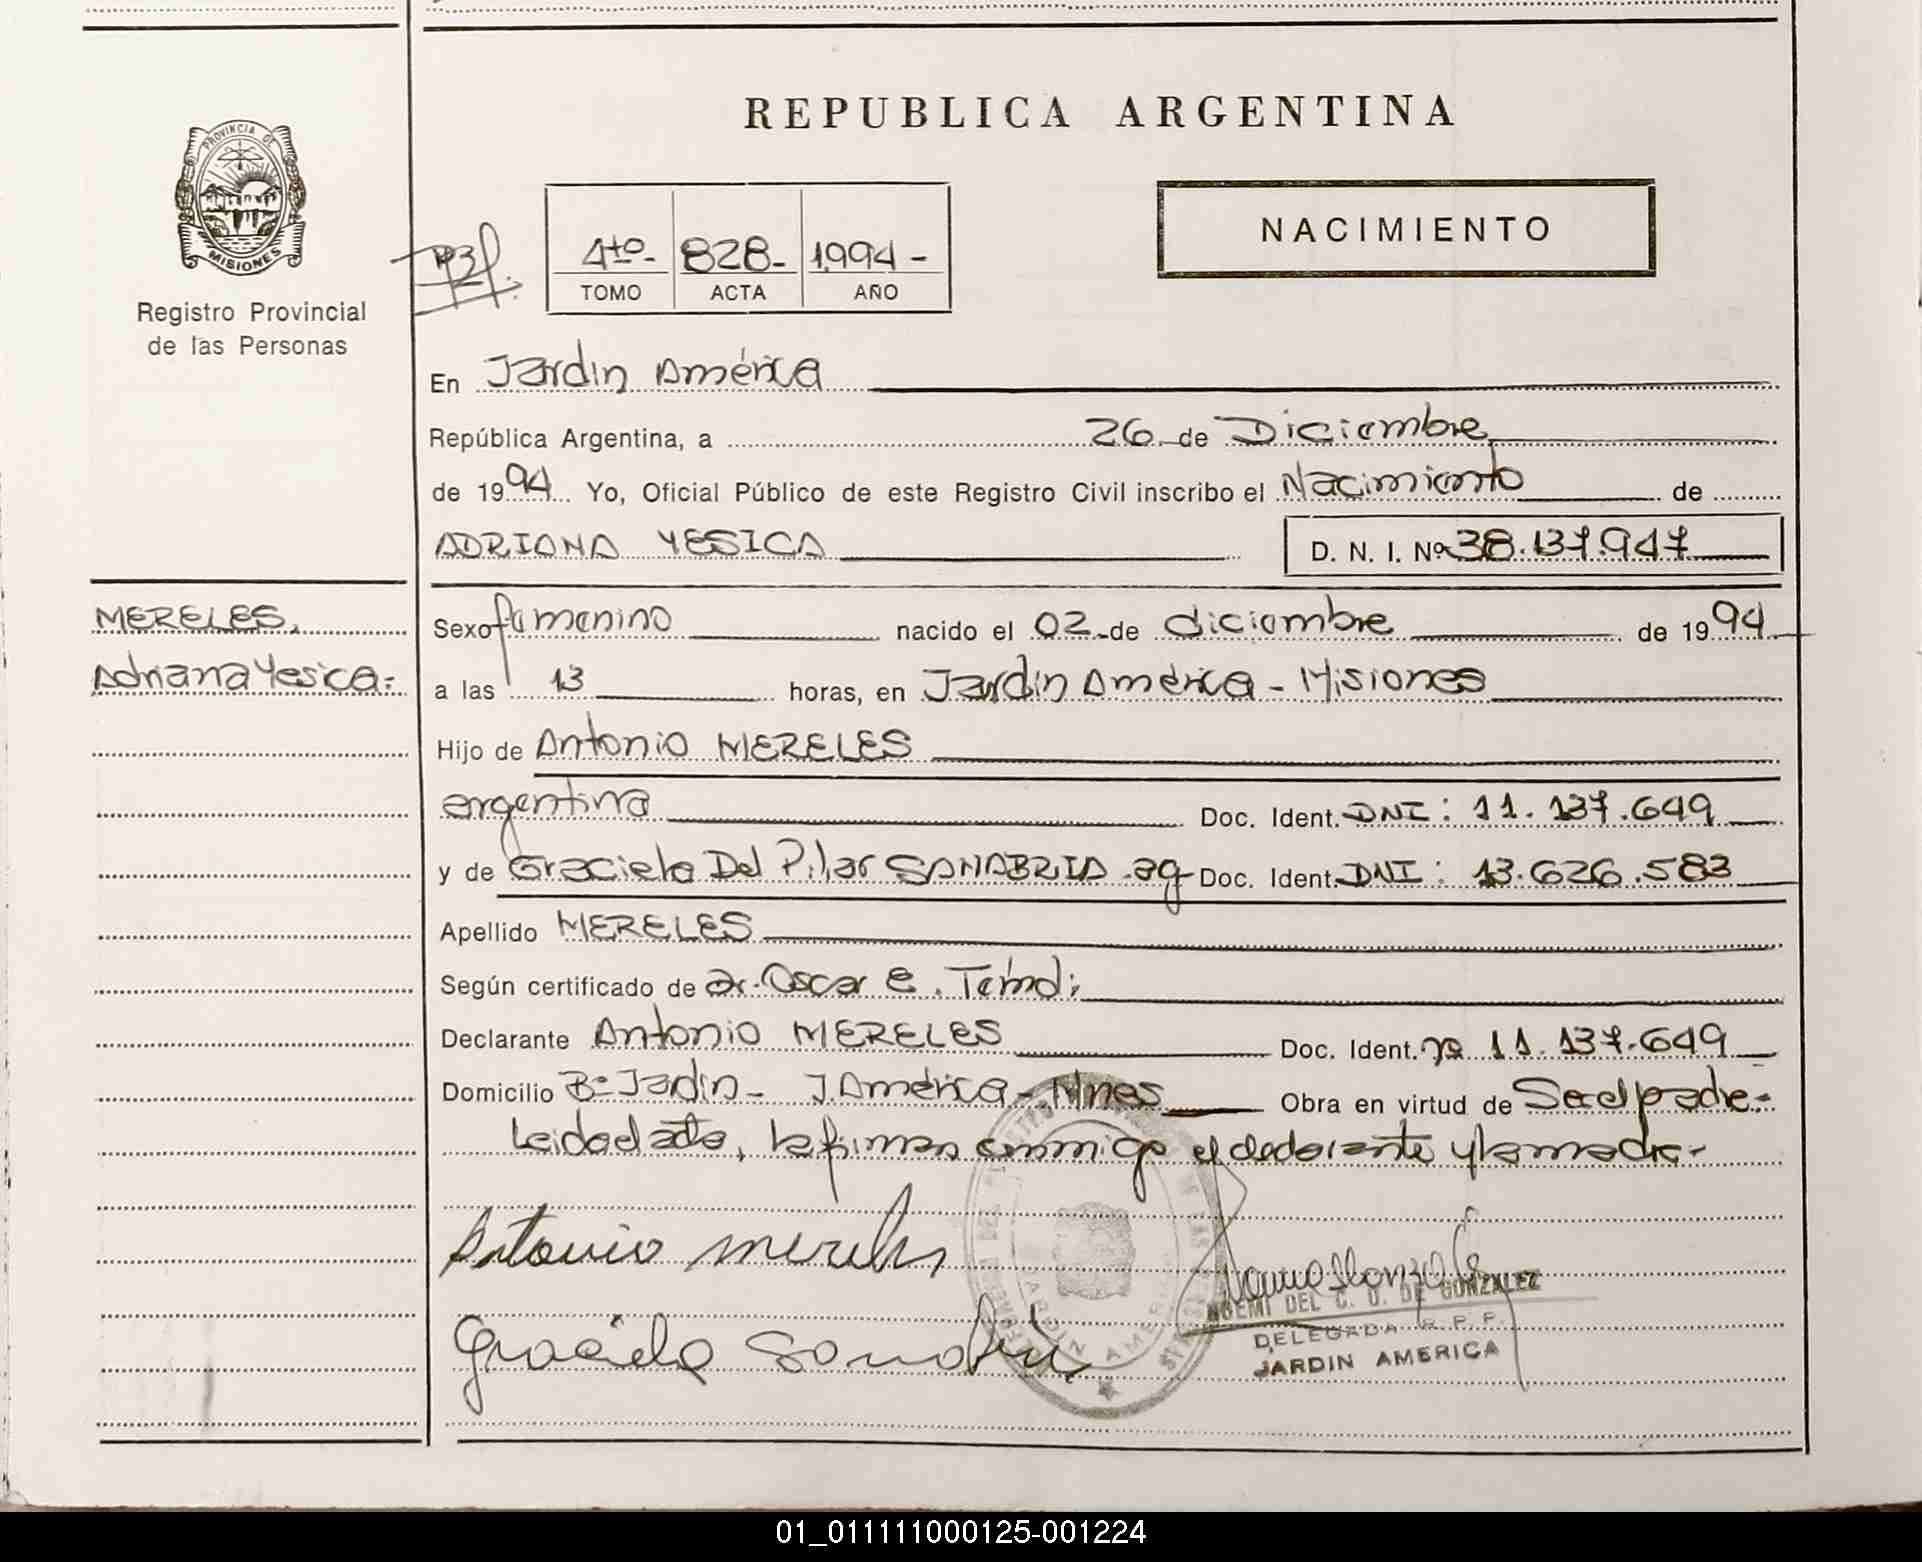 REPUBLICA ARGENTINA
PROVINCIA DE MISIONES
Registro Provincial
de las Personas
4to- 828- 1994-
TOMO ACTA AÑO
NACIMIENTO
En Jardin América
República Argentina, a 26 de Diciembre
de 1994 Yo, Oficial Público de este Registro Civil inscribo el Nacimiento de
ADRIANA YESICA D. N. I. Nº 38.137.947
MERELES,
Adriana Yesica.-
Sexo femenino nacido el 02 de diciembre de 1994
a las 13 horas, en Jardin América - Misiones
Hijo de Antonio MERELES
argentina Doc. Ident. DNI: 11.137.649
y de Graciela Del Pilar SANABRIA arg Doc. Ident. DNI: 13.626.583
Apellido MERELES
Según certificado de Dr. Oscar E.
Declarante Antonio MERELES Doc. Ident. nº 11.137.649
Domicilio Bº Jardin - J. América - Mnes Obra en virtud de Ser el padre.-
Leida el acta, la firman conmigo el declarante y la madre.-
Antonio mereles
Graciela Sanabria
NOEMI DEL C. O. DE GONZALEZ
DELEGADA R. P. P.
JARDIN AMERICA
JARDIN AMERICA
01_011111000125-001224